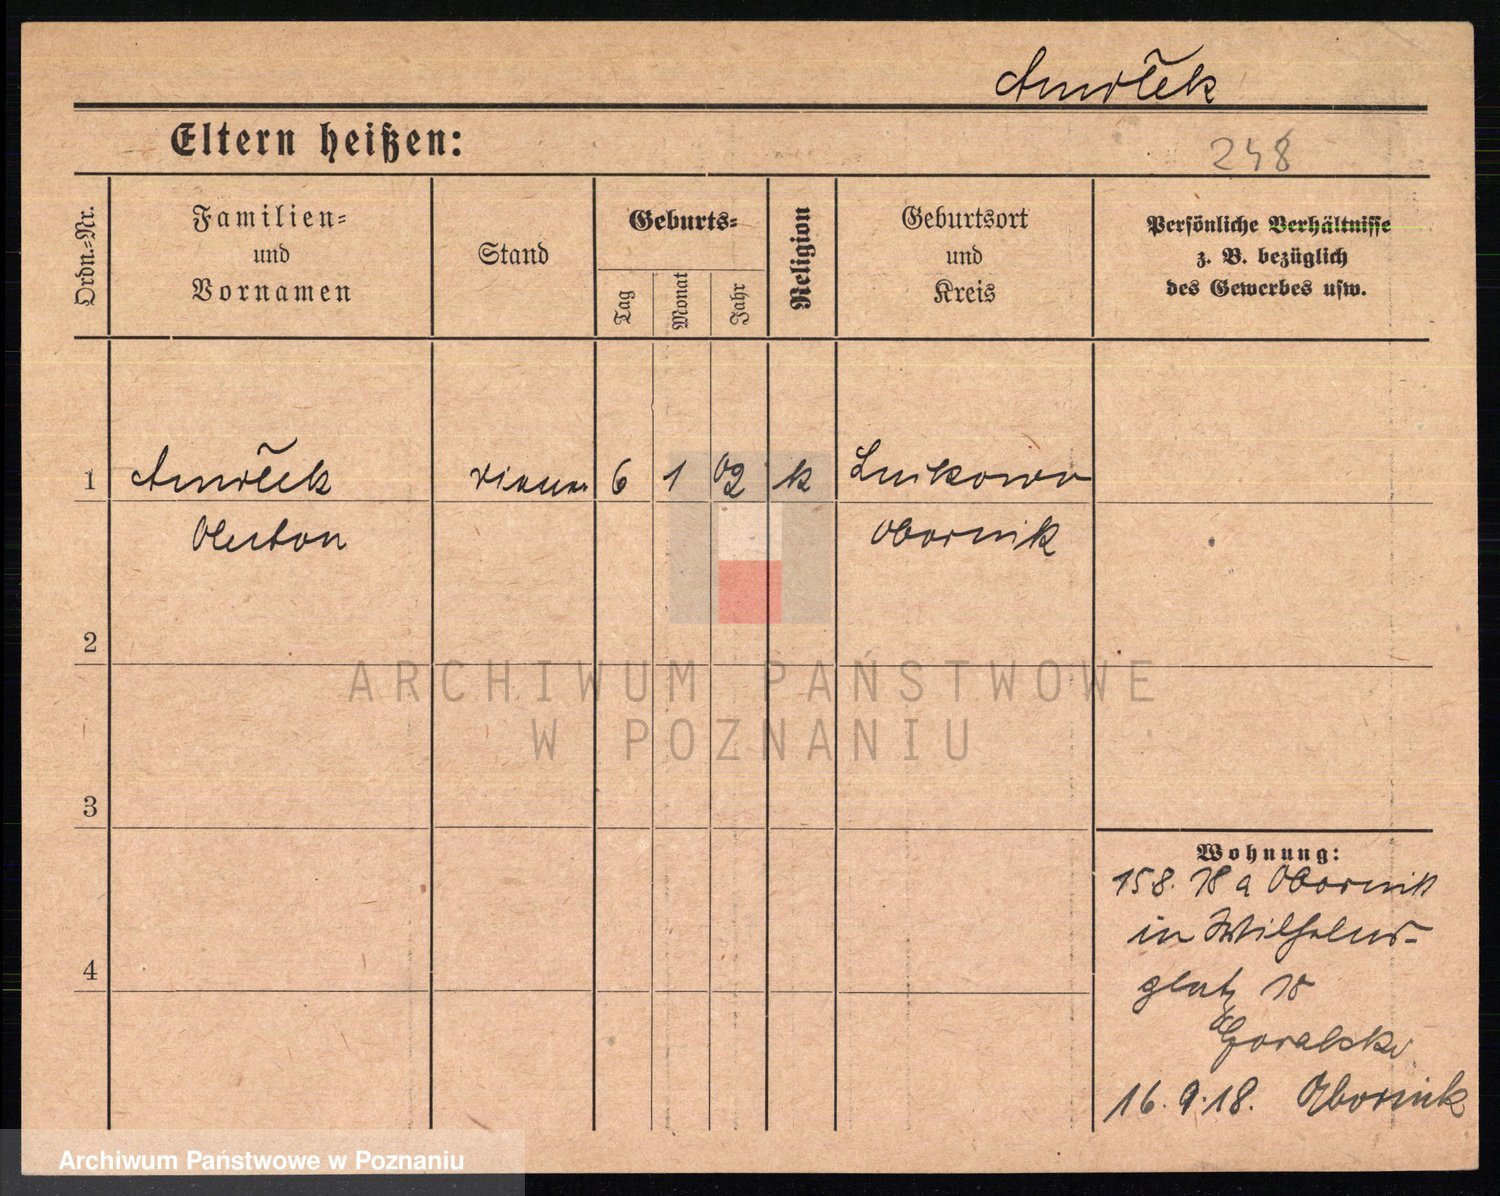 248
Eltern heißen:
Ordn.=Nr.
Familien=
und
Vornamen
Stand
Geburts=
Tag
Monat
Jahr
Religion
Geburtsort
und
Kreis
Persönliche Verhältnisse
z. B. bezüglich
des Gewerbes usw.
1
6 1 02 k
Obornik
2
3
4
ARCHIWUM PAŃSTWOWE
W POZNANIU
Wohnung:
158. 18 a Obornik
in Wilhelms-
platz 10
Goralski
16.9.18. Obornik
Archiwum Państwowe w Poznaniu